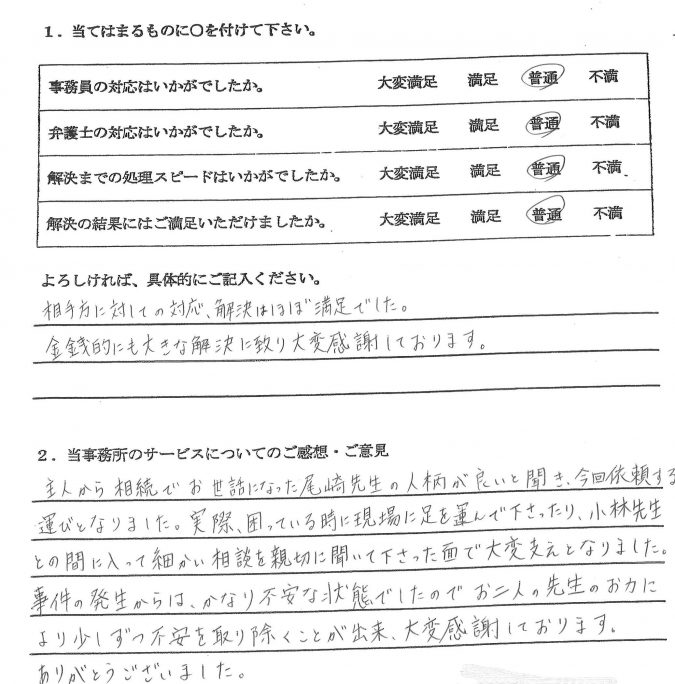 1．当てはまるものに〇を付けて下さい。
事務員の対応はいかがでしたか。 大変満足 満足 普通 不満
弁護士の対応はいかがでしたか。 大変満足 満足 普通 不満
解決までの処理スピードはいかがでしたか。 大変満足 満足 普通 不満
解決の結果にはご満足いただけましたか。 大変満足 満足 普通 不満
よろしければ、具体的にご記入ください。
相手方に対しての対応、解決はほぼ満足でした。
金銭的にも大きな解決に致り大変感謝しております。
2．当事務所のサービスについてのご感想・ご意見
主人から相続でお世話になった尾﨑先生の人柄が良いと聞き、今回依頼する
運びとなりました。実際、困っている時に現場に足を運んで下さったり、小林先生
との間に入って細かい相談を親切に聞いて下さった面で大変支えとなりました。
事件の発生からは、かなり不安な状態でしたのでお二人の先生のお力に
より少しずつ不安を取り除くことが出来、大変感謝しております。
ありがとうございました。